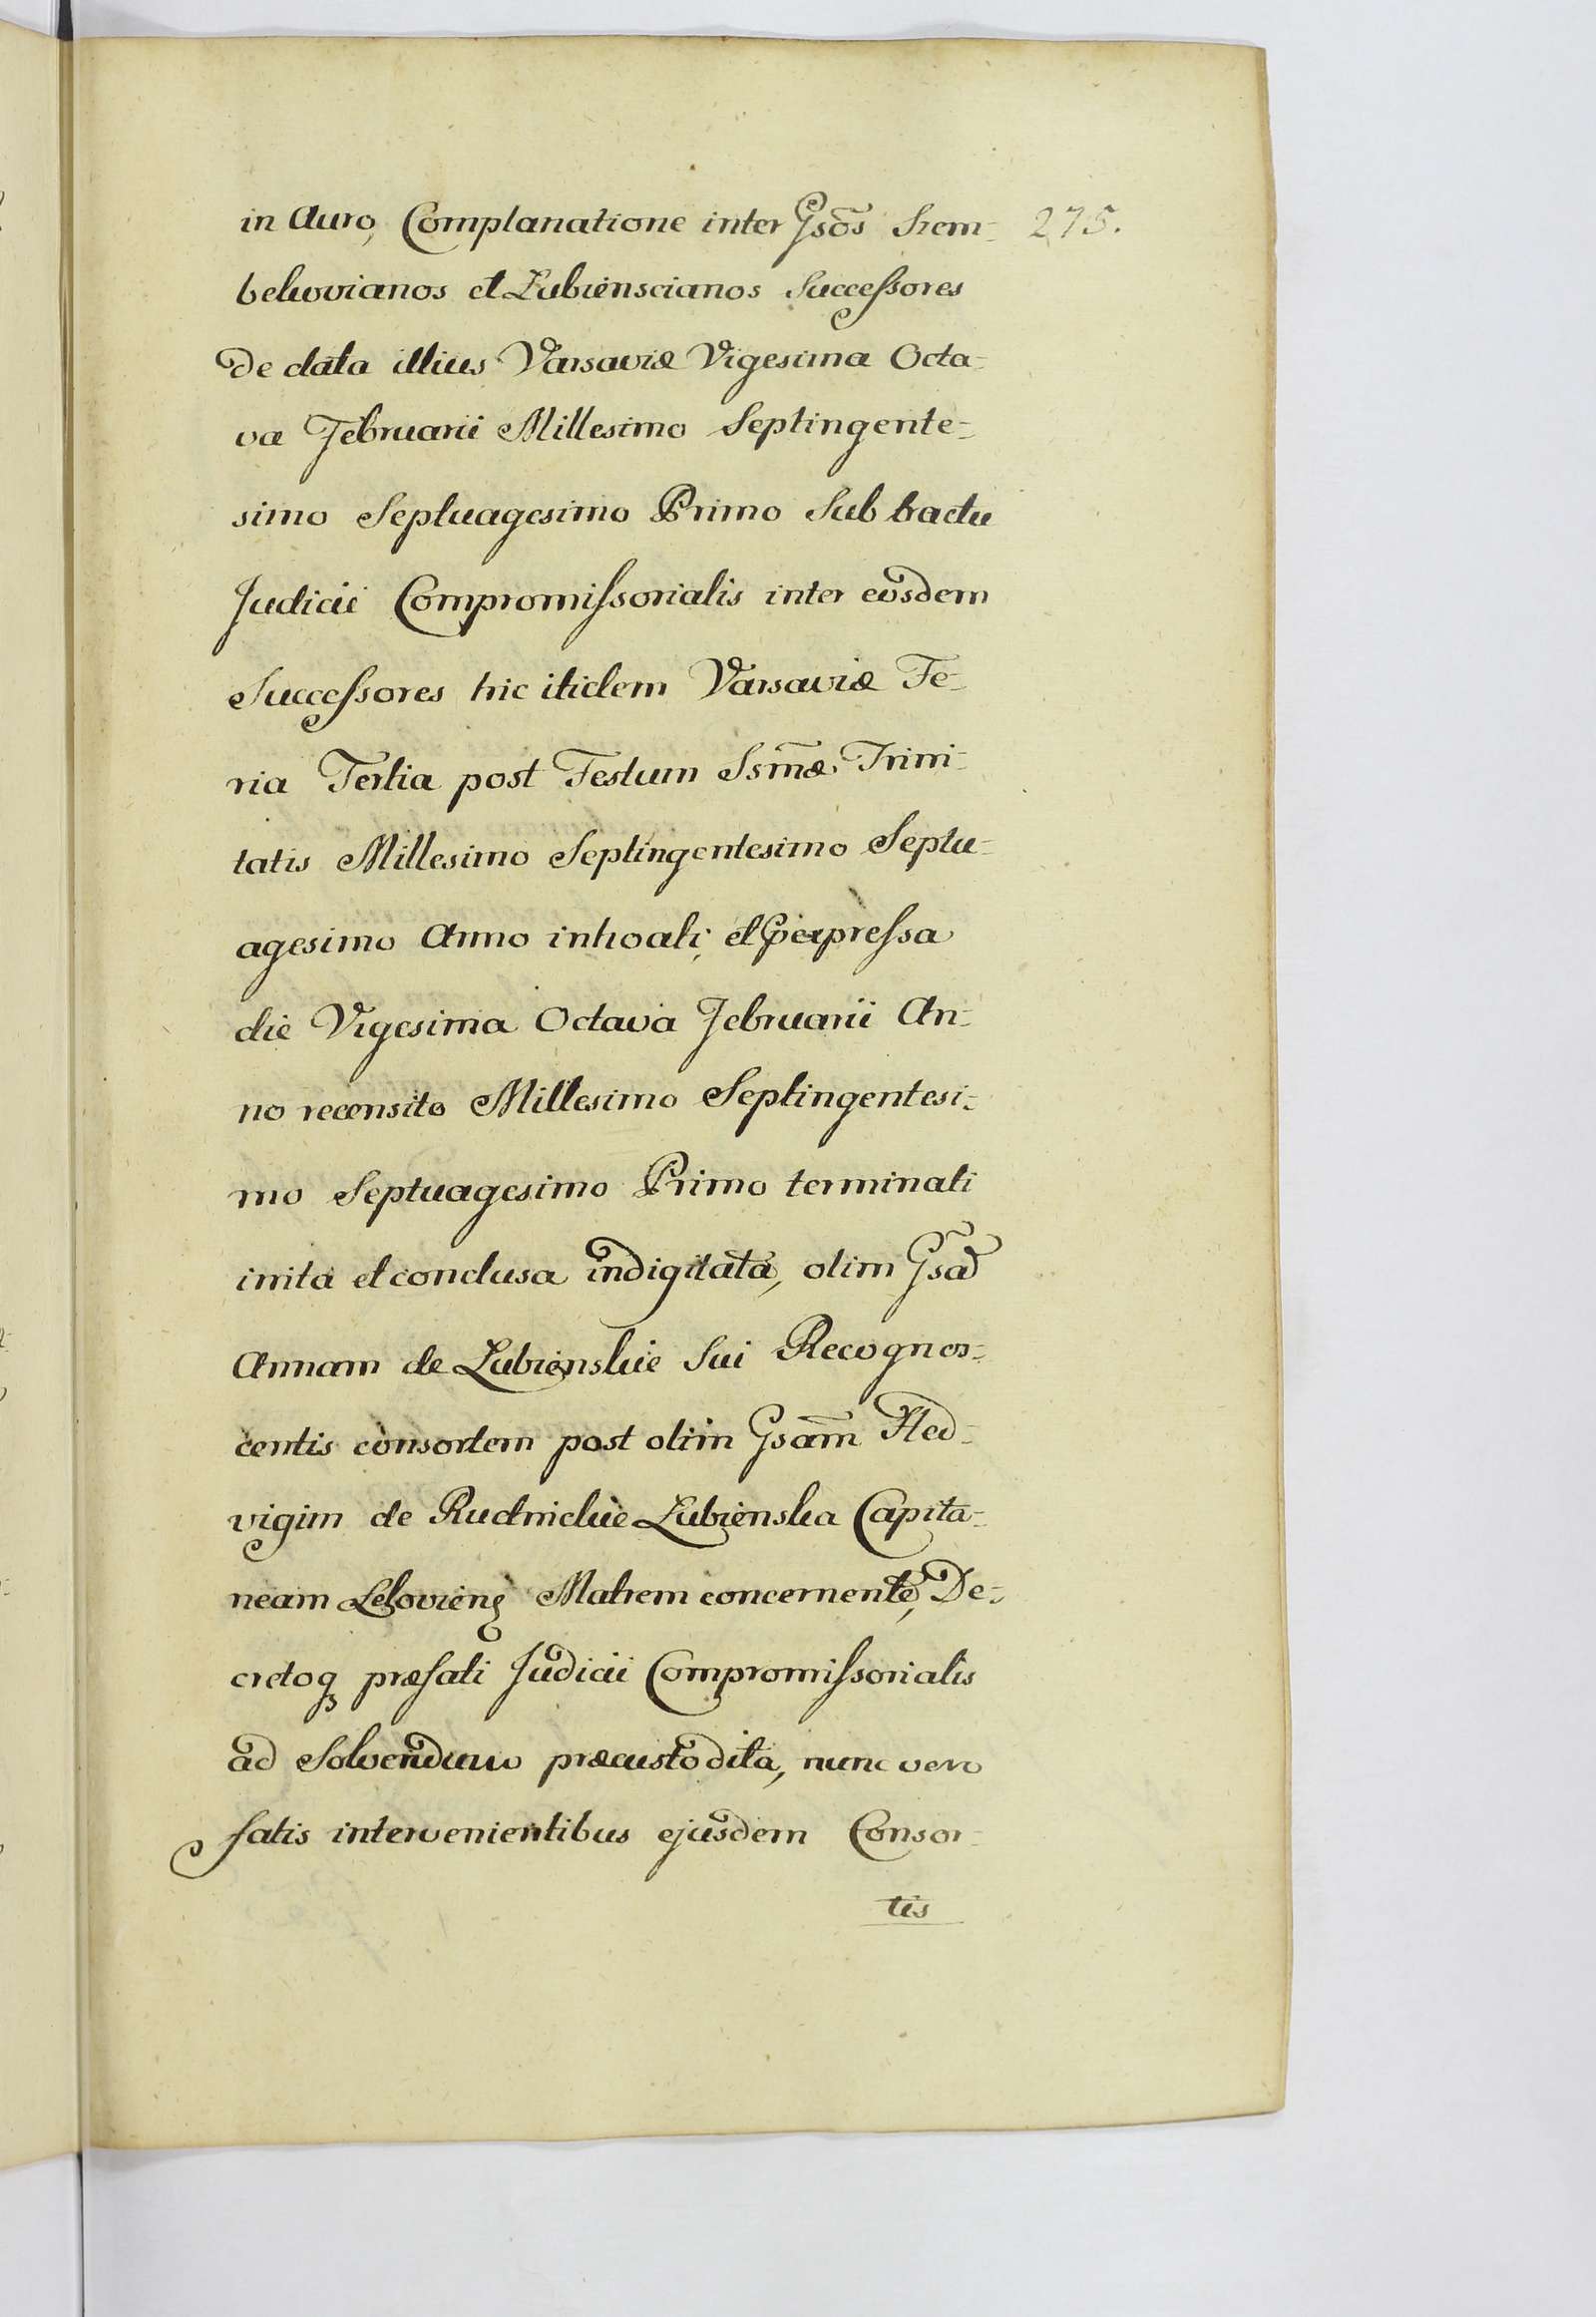 in Auro, Complanatione inter Gsõs Szem- 275.
bekovianos et Łubienscianos Successores
De data illius Varsaviæ Vigesima Octa-
va Februarii Millesimo Septingente-
simo Septuagesimo Primo Sub tractu
Judicii Compromissorialis inter eosdem
Successores hic itidem Varsaviæ Fe-
ria Tertia post Festum Ssmæ Trini-
tatis Millesimo Septingentesimo Septu-
agesimo Anno inhoati, et expressa
die Vigesima Octava Februarii An-
no recensito Millesimo Septingentesi-
mo Septuagesimo Primo terminati
inita et conclusa indigitata, olim Gsad
Annam de Łubienskie Sui Recognos-
centis consortem post olim Gsam̃ Hed-
vigim de Rudnickie Łubienska Capita-
neam Matrem concernente, De-
cretoq præfati Judicii Compromissorialis
ad Solvendum præcustodita, nunc vero
fatis intervenientibus ejusdem Consor-
tis